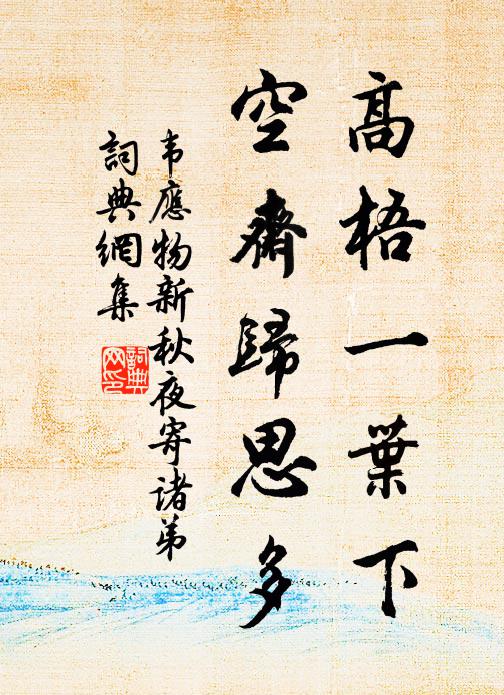 高梧一葉下
空齋歸思多
韦應物新秋夜寄诸弟
詞典網集
詞典网印